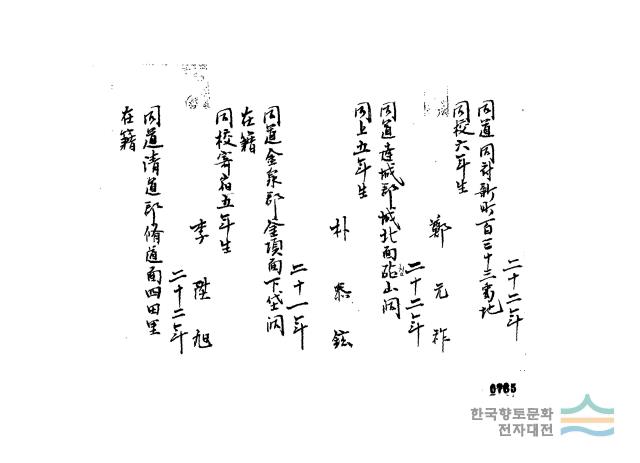 二十二年
同道同府新町百三十三番地
鄭元祚
同校六年生
二十二年
同道達城郡城北面砧山洞
朴泰鉉
同上五年生
二十一年
同道金泉郡釜項面下垈洞
在籍
同校寄宿五年生
李陞旭
二十二年
同道清道郡脩道面四田里
在籍
0765
한국향토문화
전자대전